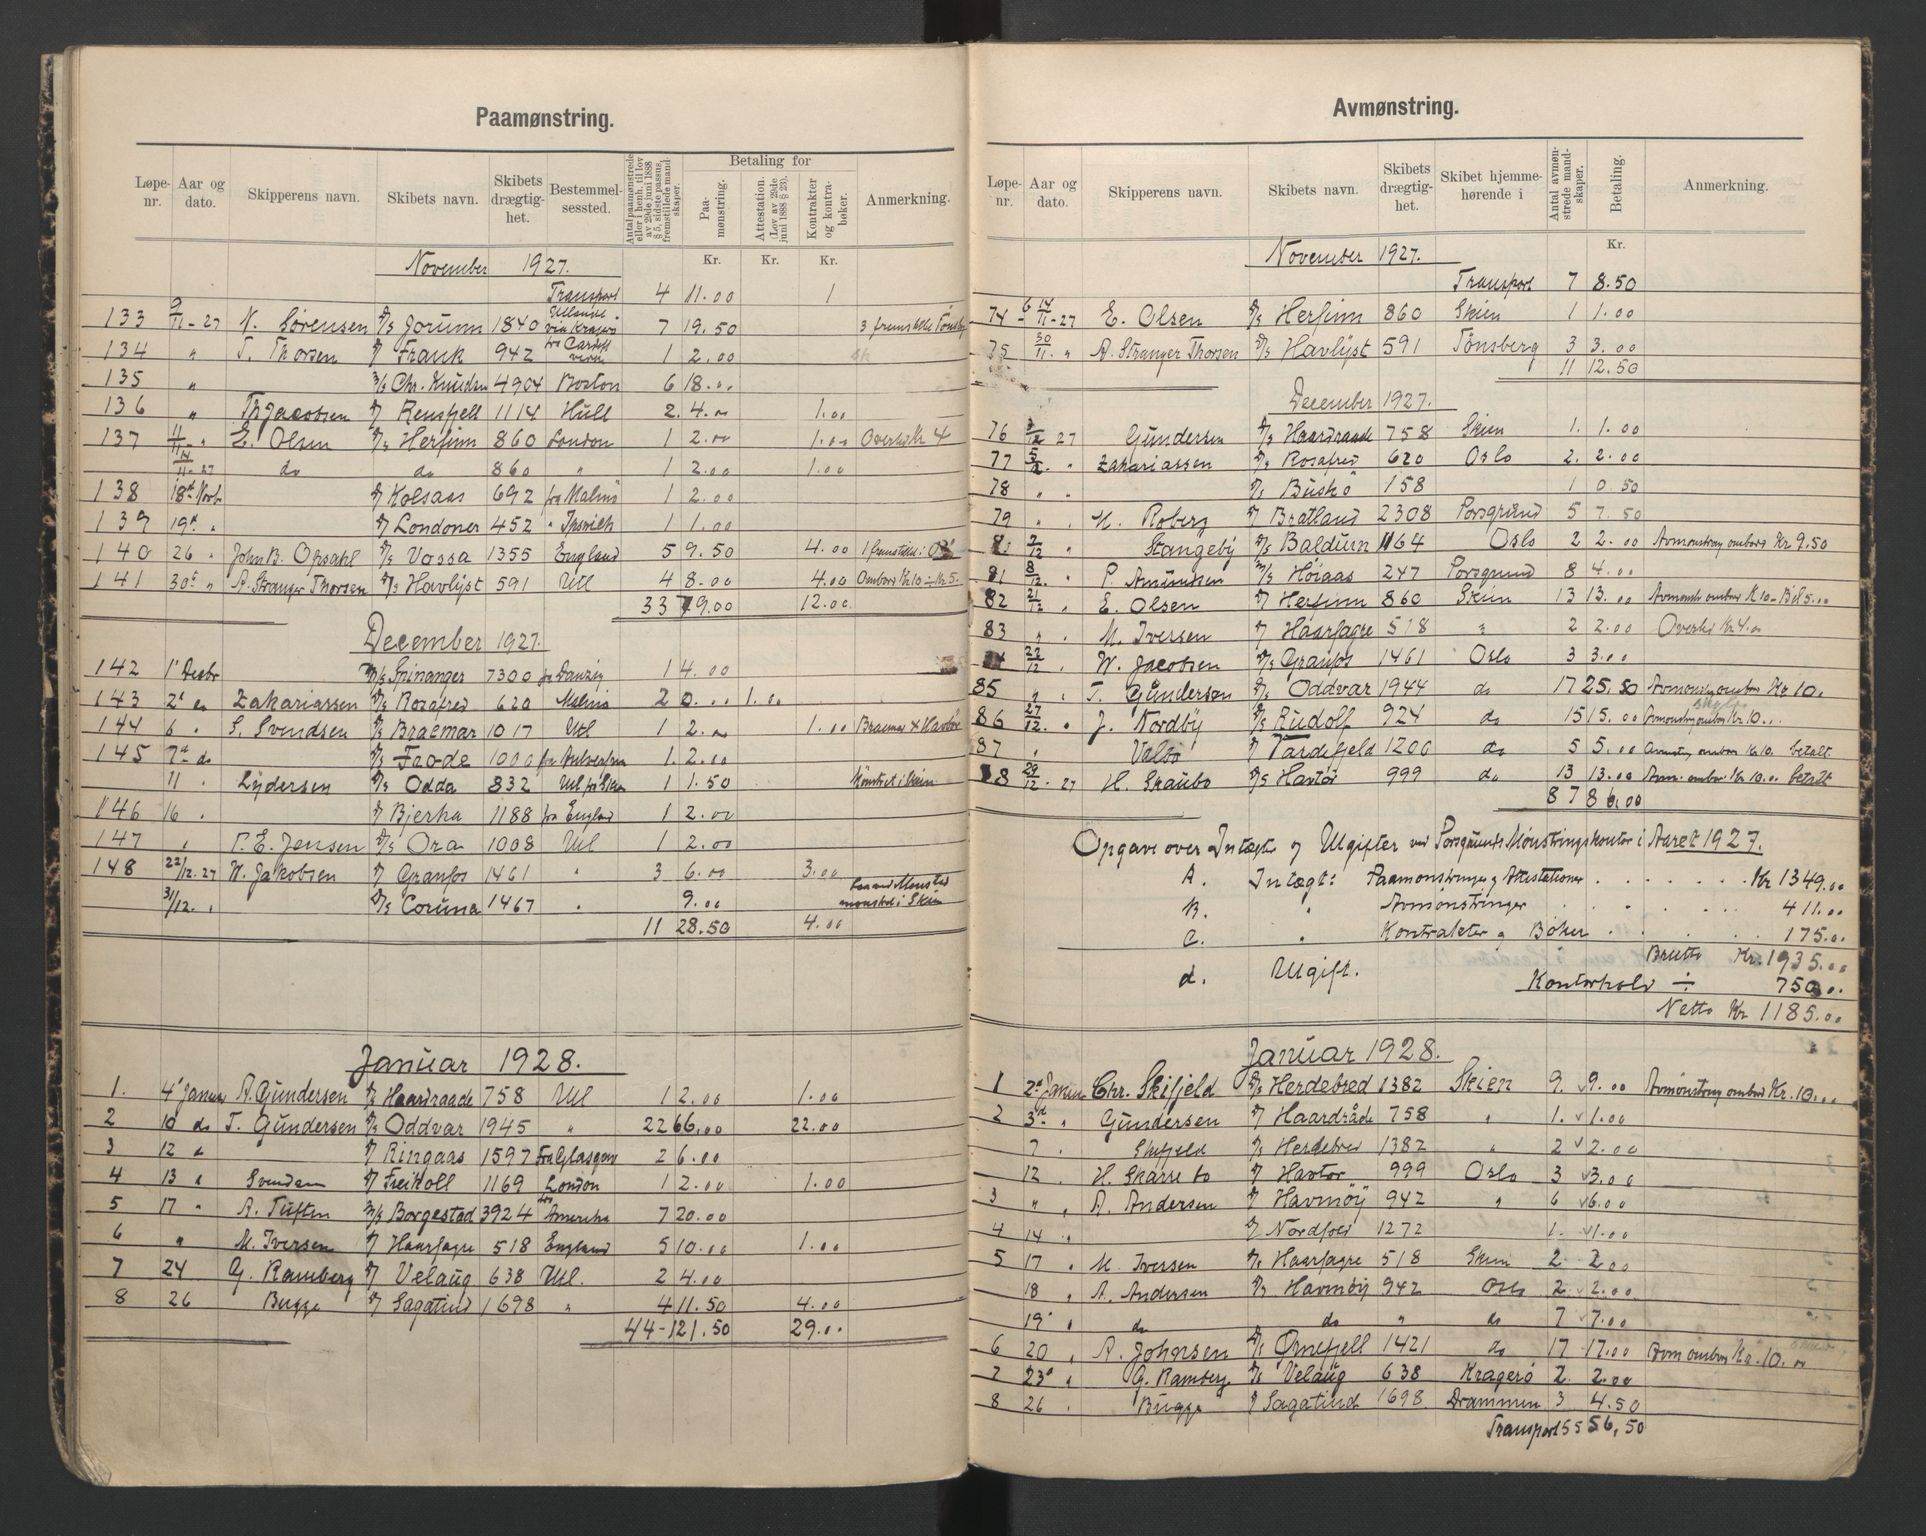 Paamønstring.
Løpe-nr. Aar og dato. Skipperens navn. Skibets navn. Skibets drægtig-het. Bestemmel-sessted. Antal paamønstrede eller i henh. til lov av 29de juni 1888 § 5, sidste passus, fremstillede mand-skaper. Betaling for Paa-mønstring. Attestation. (Lov av 29de juni 1888 § 23). Kontrakter og kontra-bøker. Anmerkning.
Kr. Kr. Kr.
November 1927.
Transport 4 11.00 1
133 9/11-27 N. Sørensen D/S Jorunn 1840 via Kragerø 7 19.50 3 fremstilte Tønsby
134 " T. Thorsen D/ Frank 942 fra Cardiff 1 2.00
135 " M/S Chr. Knudsen 4904 Boston 6 18.00
136 " Th Jacobsen D/ Rensfjell 1114 Hull 2. 4.00 1.00
137 11/11- " E. Olsen D/S Herfinn 860 London 1 2.00 1.00 Overtid Kr 4
14/11-27 do do 860 " 1 2.00 1.00
138 18de Novb. D/ Kolsaas 692 fra Malmö 1 2.00
139 19de " D/ Londoner 452 " Ipswich 1 1.00
140 26 " John B. Opsahl D/S Vossa 1355 England 5 9.50 4.00 1 fremstillet i
141 30te " A. Stranger Thorsen D/S Havlyst 591 Utl 4 8.00 4.00 Ombord Kr 10 ÷ Kr 5.
33 79.00 12.00
December 1927.
142 1' Desbr M/S Spinanger 7300 fra Danzig 1 4.00
143 2' Zakariassen D/S Rosafred 620 Malmö 2 0.00 1.00
144 6 " S. Svendsen D/S Braemar 1017 Utl 1 2.00 1.00
145 7de do D/S Frode 1000 fra 1. 2.00
11 Lydersen D/S Odda 832 Utl fra Skien 1 1.50 Mönstret i Skien
146 16 " D/ Bjerka 1188 fra England 1 2.00
147 " P. E. Jensen D/S Ora 1008 Utl 1 2.00
148 22/12.27 W. Jakobsen D/ Granfos 1461 " 3 6.00 3.00
31/12. " D/S Coruna 1467 " 9.00 mønstret i Skien
11 28.50 4.00
Januar 1928.
1. 4' Januar A. Gundersen D/S Haardraade 758 Utl 1 2.00 1.00
2 10 do T. Gundersen D/S Oddvar 1945 " 22 66.00 22.00
3 12 " D/ Ringaas 1597 Fra Glasgow 2 6.00
4 13 " Svendsen D/ Freikoll 1169 London 1 2.00 1.00
5 17 " A. Tuften M/S Borgestad 3924 fra Amerika 7 20.00
6 " M. Iversen D/ Haarfagre 518 England 5 10.00 1.00
7 24 G. Ramberg D/ Velaug 638 Utl. 2 4.00
8 26 Bugge D/ Sagatind 1698 " 4 11.50 4.00
44 - 121.50 29.00
Avmønstring.
Løpe-nr. Aar og dato. Skipperens navn. Skibets navn. Skibets drægtig-het. Skibet hjemme-hørende i Antal avmøn-strede mand-skaper. Betaling. Anmerkning.
Kr.
November 1927.
Transport 7 8.50
74 14/11-27 E. Olsen D/S Herfinn 860 Skien 1 1.00
75 30/11. " A. Stranger Thorsen D/S Havlyst 591 Tönsberg 3 3.00
11 12.50
December 1927.
76 27 Gundersen D/S Haardraade 758 Skien 1. 1.00
77 " Zakariassen D/S Rosafred 620 Oslo 2. 2.00
78 " " D/S Buskö 158 1 0.50
79 " " H. Roberg D/ Bratland 2308 Porsgrund 5 7.50
80 7/12 " Stangeby D/S Baldurn 1164 Oslo 2 2.00 Avmönstring ombord Kr 9.50
81 8/12. " P. Amundsen M/S Höiaas 247 Porsgrund 8 4.00
82 21/12 " E. Olsen D/ Herfinn 860 Skien 13 13.00 Avmönstr ombord K 10 - Bil 5.00
83 " " M. Iversen D/ Haarfagre 518 " 2 2.00 Overtid Kr 4.00
W. Jacobsen D/S Granfos 1461 Oslo 3 3.00
85 " " T. Gundersen D/S Oddvar 1944 do 17 25.50 Avmönstring ombord Kr 10.
86 27/12. " J. Nordby D/S Rudolf 924 do 15 15.00 Avmönstring ombord Kr 10.00
87 " Valbö D/ Vardefjeld 1200 do 5 5.00 ombord Kr 10. betalt
88 29/12.27 H. Skaubo D/S Havtör 999 do 13 13.00 Avm. ombord Kr 10.00 betalt
87 86.00
Opgave over Intægter og Utgifter ved Porsgrunds Mönstringskontor i Aaret 1927.
A. Intægt: Paamönstringer og Attestationer Kr 1349.00
B. " Avmönstringer 411.00
C. " Kontrakter og Böker 175.00
Brutto Kr. 1935.00
d. Utgift. Kontorhold ÷ 750.00.
Netto Kr 1185.00
Januar 1928.
1 2' Januar Chr. Skifjeld D/S Herdebred 1382 Skien 9. 9.00 Avmönstring ombord Kr. 10.00
2 3de " Gundersen D/ Haardråde 758 " 1. 1.00
7 " Skifjeld D/ Herdebred 1382 " 2 2.00
12 " H. Skarrebo D/ Havtor 999 Oslo 3 3.00
3 " " A. Andersen D/ Havmöy 942 " 6 6.00
4 14 " D/ Nordfold 1272 1. 1.00
5 17 " M. Iversen D/S Haarfagre 518 Skien 2 2.00
18 " A. Andersen D/S Havmöy 942 Oslo 2 2.00
19' " do do " do 7 7.00
6 20 " A. Johnsen D/S Ørnefjell 1421 do 17 17.00 Avm ombord Kr. 10.00
7 23' " G. Ramberg D/S Velaug 638 Kragerø 2. 2.00
8 26 " Bugge D/ Sagatind 1698 Drammen 3 4.50
Transport 55 56,50